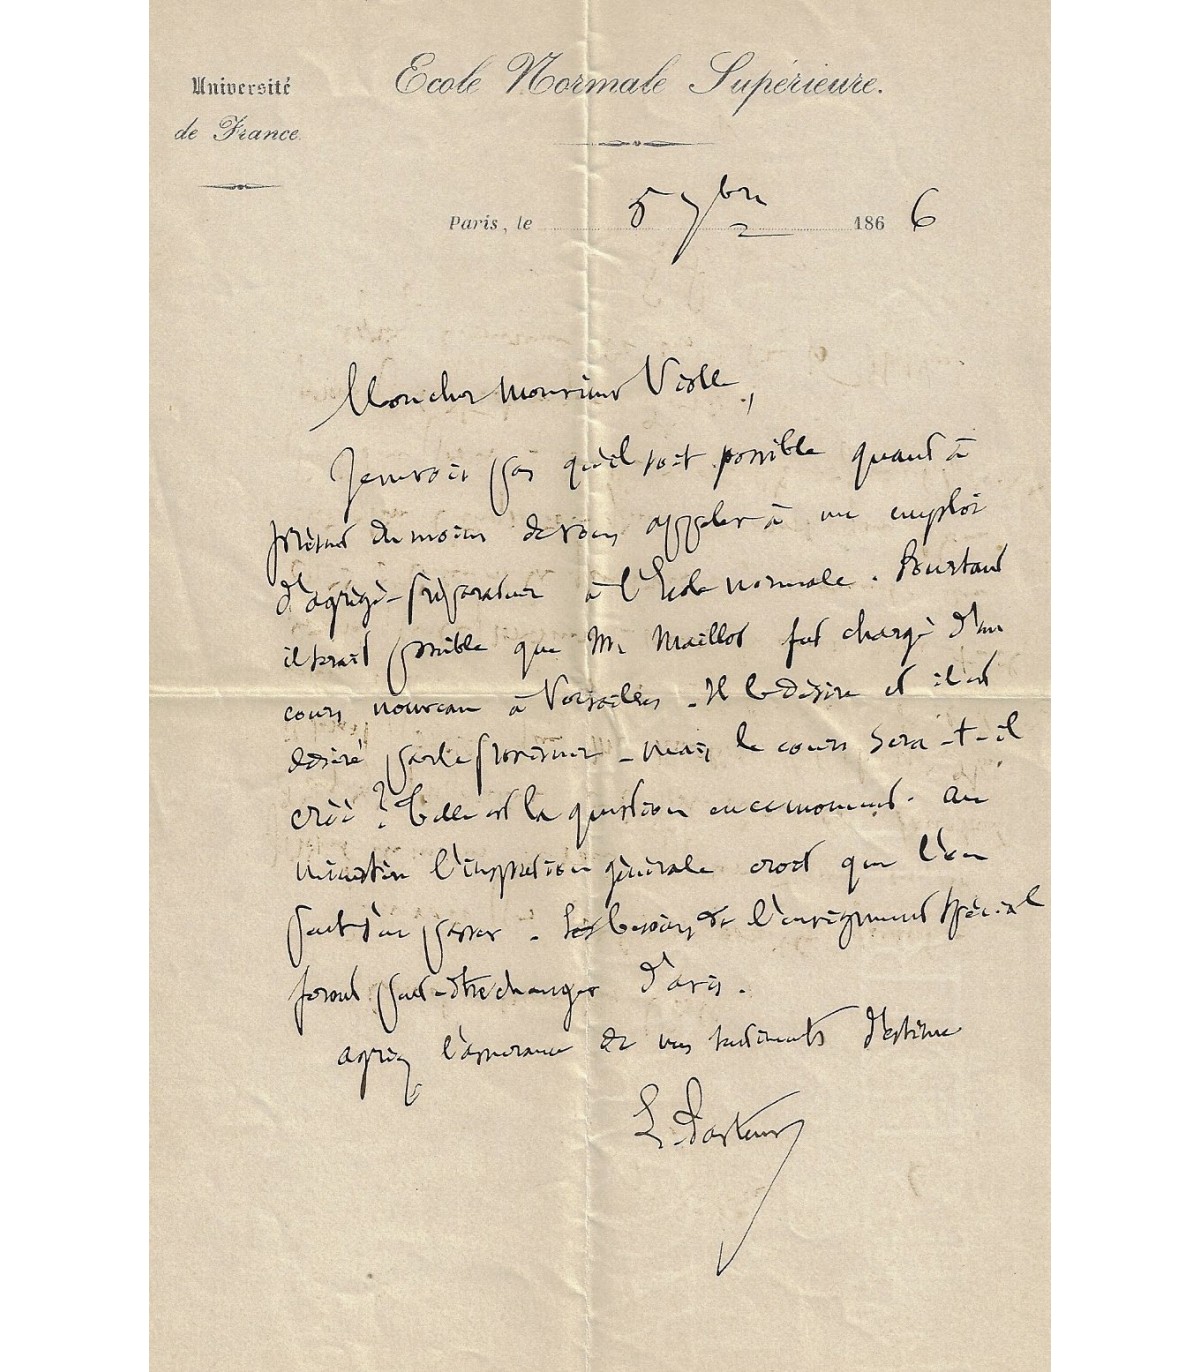 Université
de France
Ecole Normale Supérieure.
Paris, le 5 7bre 1866
Mon cher Monsieur Violle,
Je ne vois pas qu'il soit possible quant à
présent du moins de vous appeler à un emploi
d'agrégé-préparateur à l'Ecole normale. Pourtant
il serait possible que Mr Maillot fut chargé d'un
cours nouveau à Versailles. Il le désire et il est
désiré par le proviseur - mais le cours sera-t-il
créé ? Telle est la question en ce moment. Au
ministère l'inspection générale croit que l'on
peut s'en passer. Les besoins de l'enseignement spécial
feront peut-être changer d'avis.
agréez l'assurance de mes sentiments d'estime
L. Pasteur